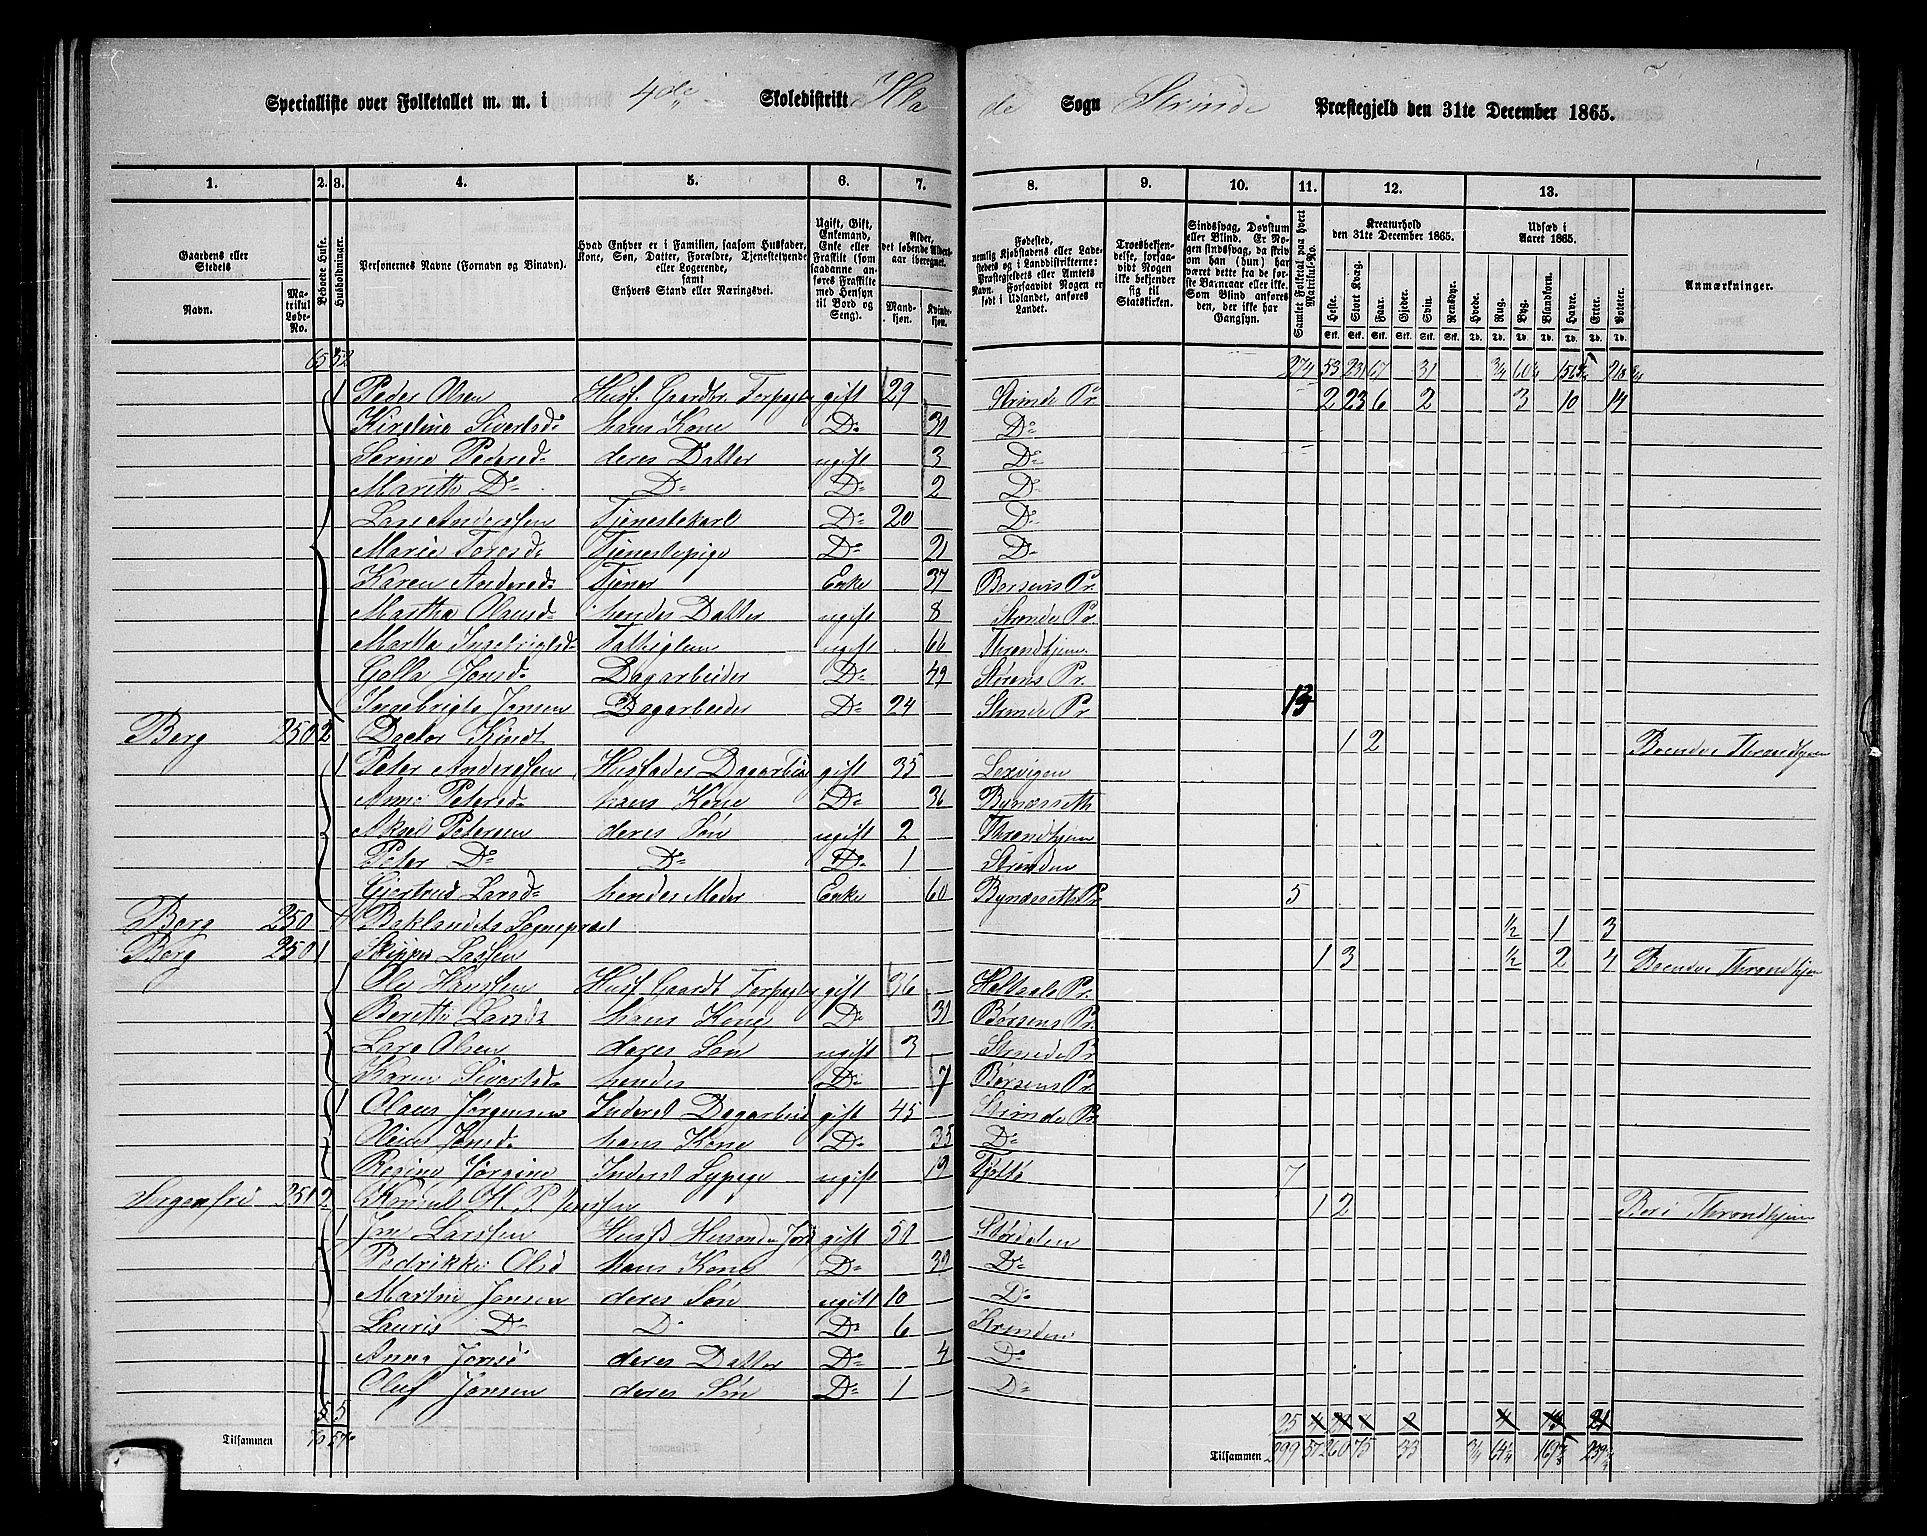 Specialliste over Folketallet m. m. i 4de Skoledistrikt Hla de Sogn Strinde Præstegjeld den 31te December 1865.
1. 2. 3. 4. 5. 6. 7. 8. 9. 10. 11. 12. 13.
Gaardens eller Stedets
Navn.
Matrikul Løbe-No.
Beboede Huse.
Husholdninger.
Personernes Navne (Fornavn og Binavn).
Hvad Enhver er i Familien, saasom Husfader, Kone, Søn, Datter, Forældre, Tjenestetyende eller Logerende, samt Enhvers Stand eller Næringsvei.
Ugift, Gift, Enkemand, Enke eller Fraskilt (som saadanne anføres Fraskilte med Hensyn til Bord og Seng).
Alder, det løbende Aldersaar iberegnet.
Mandkjøn. Kvindekjøn.
Fødested, nemlig Kjøbstadens eller Ladestedets og i Landdistrikterne: Præstegjeldets eller Amtets Navn. Forsaavidt Nogen er født i Udlandet, anføres Landet.
Troesbekjendelse, forsaavidt Nogen ikke bekjender sig til Statskirken.
Sindssvag, Døvstum eller Blind. Er Nogen sindssvag, da skrives om han (hun) har været dette fra de første Barneaar eller ikke. Som Blind anføres den, der ikke har Gangsyn.
Samlet Folketal paa hvert Matrikul-No.
Kreaturhold den 31te December 1865.
Heste. Stort Kvæg. Faar. Gjeder. Svin. Rensdyr.
Udsæd i Aaret 1865.
Hvede. Rug. Byg. Blandkorn. Havre. Erter. Poteter.
Anmærkninger.
65 52 274 53 231 67 31
1 Peder Olsen Husf. Gaardbr. Forpagter gift 29 Strinde Pr. 2 23 6 2 3 10 14
Kirstina Sivertsd. hans Kone Do 31 Do
Serine Pedersd. deres Datter ugift 3 Do
Marith Do Do Do 2 Do
Lars Anderssen Tjenestekarl Do 20 Do
Marie Toresd. Tjenestepige Do 21 Do
Karen Andersd. Tjener Enke 37 Børsens Pr.
Martha Olausd. hendes Datter ugift 8 Strinde Pr.
Martha Ingebrigtsd. Fattiglem ugift 66 Throndhjem
Golla Jonsd. Dagarbeider Do 49 Størens Pr.
Ingebrigt Jonsen Dagarbeider Do 24 Strinde Pr. 13
Berg 250 2 Doctor Kindt 1 2 Boende Throndhjem
1 Peter Anderssen Husfader Dagarbeid gift 35 Lexvigen
Anne Petersd. hans Kone Do 36 Bynæsseth
Aksel Petersen deres Søn ugift 2 Throndhjem
Peter Do Do Do 1 Strinden
Gjertrud Larsd. hendes Moder Enke 60 Bynæsseth Pr. 5
Berg 250 Baklandets Sognepræst ½ 1 3
Berg 250 1 Skipper Lassen 1 3 ½ 2 4 Boende Throndhjem
1 Ole Hanssen Husf. Gaardb. Forpagter gift 36 Holtaale Pr.
Berette Larsd. hans Kone Do 31 Børsens Pr.
Lars Olsen deres Søn ugift 3 Strinde Pr
Karen Sivertsd. hendes Do 7 Børsens Pr.
1 Olaus Jørgensen Inderst Dagarbeid gift 45 Strinde Pr.
Oline Jonsd. hans Kone Do 35 Do
Regine Jørgine Inderst Sypige ugift 19 Tjøtø 7
Sorgenfri 251 2 1 2 Bor i Throndhjem
1 Jon Larssen Husf. Husmand m Jord gift 50 Størdalen
Pedrikke Olsd. hans Kone Do 39 Do
Martin Jonsen deres Søn ugift 10 Do
Lauris Do Do Do 6 Strinden
Anna Jonsd. deres Datter Do 4 Do
Oluf Jonsen deres Søn Do 1 Do
5 5 25
Tilsammen 70 57 Tilsammen 299 57 260 75 33